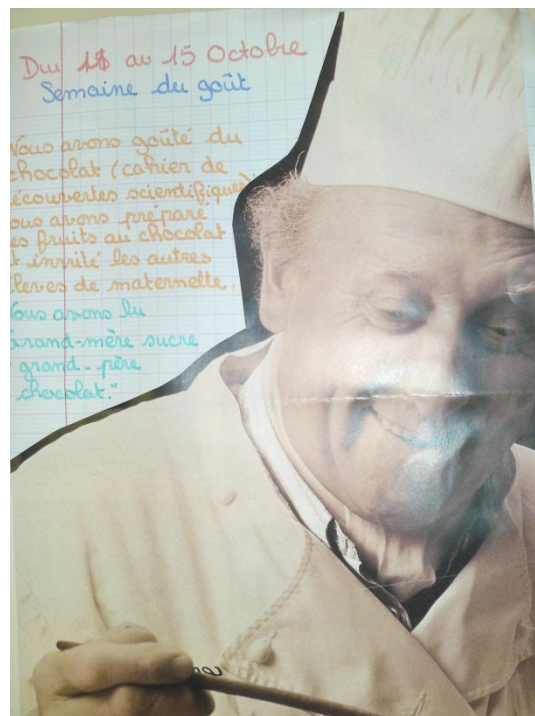 Du au 15 Octobre
Semaine du goût
Nous avons goûté du
chocolat (cahier de
écouvertes scientifiques)
ous avons préparé
es fruits au chocolat
t invité les autres
lèves de maternelle.
Nous avons lu
grand-mère sucre
grand-père
chocolat."